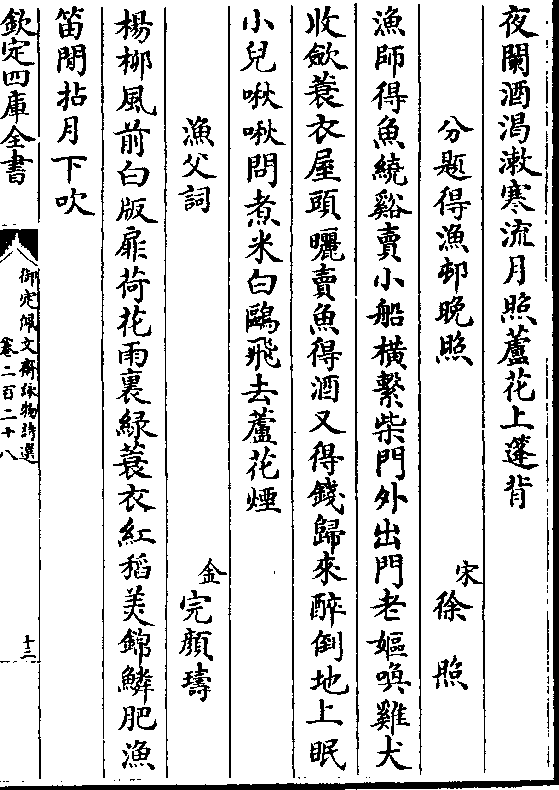 夜闌酒渴漱寒流月照蘆花上蓬背
分題得漁邨晚照 宋徐照
漁師得魚繞谿賣小船横繫柴門外出門老嫗喚雞犬
收斂蓑衣屋頭曬賣魚得酒又得錢歸來醉倒地上眠
小兒啾啾問煮米白鷗飛去蘆花煙
漁父詞 金完顔璹
楊柳風前白版扉荷花雨裏緑蓑衣紅稻美錦鱗肥漁
笛閒拈月下吹
欽定四庫全書
御定佩文齋詠物詩選
卷二百二十八
十三